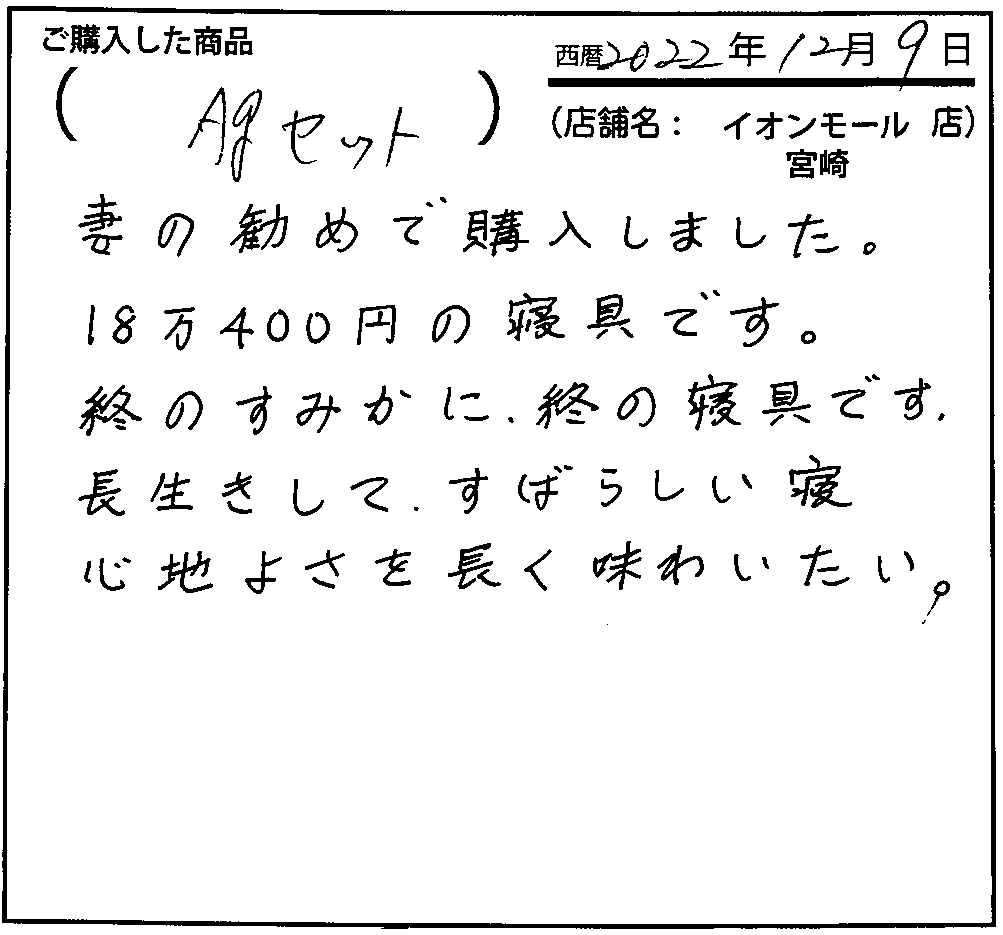 ご購入した商品
西暦2022年12月9日
(Agセット)
(店舗名： イオンモール 店)
宮崎
妻の勧めで購入しました。
18万400円の寝具です。
終のすみかに、終の寝具です、
長生きして、すばらしい寝
心地よさを長く味わいたい。